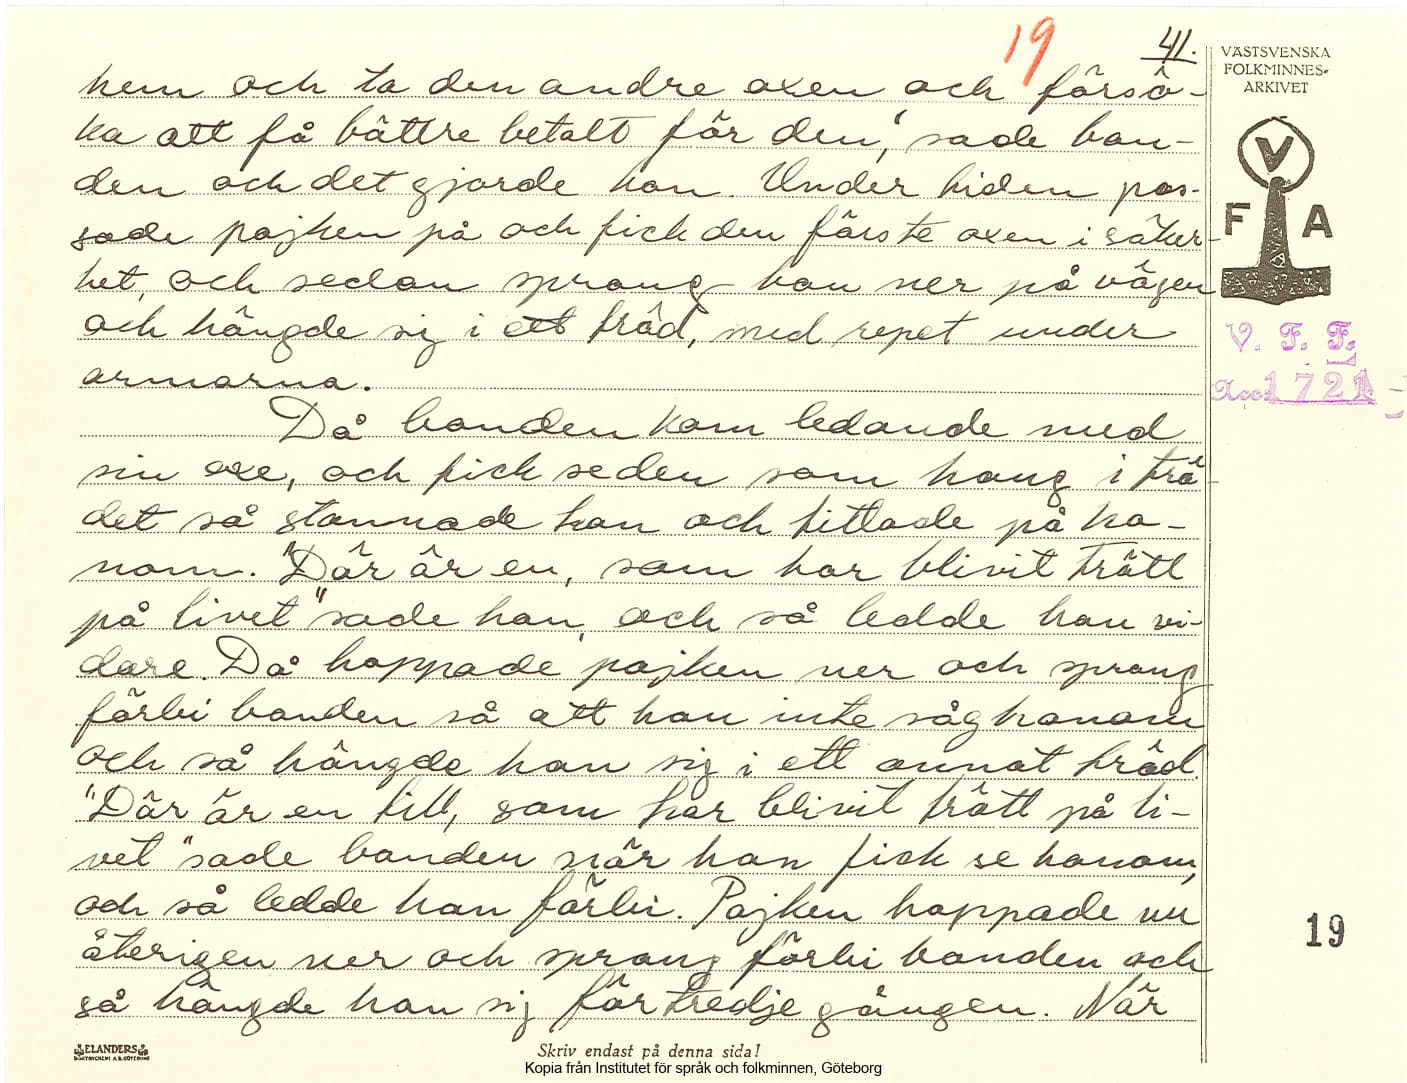 19
41.
VÄSTSVENSKA
FOLKMINNES-
ARKIVET
V
F A
V. F. F.
Acc. 1721
hem och ta den andre oxen och försö-
ka att få bättre betalt för den", sade bon-
den och det gjorde han. Under tiden pas-
sade pojken på och fick den förste oxen i säker-
het, och sedan sprang han ner på vägen
och hängde sig i ett träd, med repet under
armarna.
Då bonden kom ledande med
sin oxe, och fick se den som hang i trä-
det så stannade han och tittade på ho-
nom. "Där är en, som har blivit trött
på livet" sade han, och så ledde han vi-
dare. Då hoppade pojken ner och sprang
förbi bonden så att han inte såg honom
och så hängde han sig i ett annat träd.
"Där är en till, som har blivit trött på li-
vet" sade bonden när han fick se honom,
och så ledde han förbi. Pojken hoppade nu
återigen ner och sprang förbi bonden och
så hängde han sig för tredje gången. När
19
ELANDERS
Skriv endast på denna sida!
Kopia från Institutet för språk och folkminnen, Göteborg